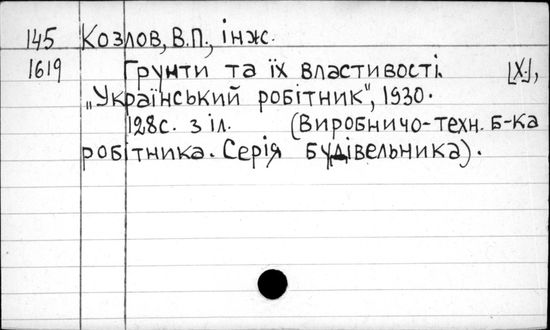 145 Козлов, В.П., інж.
1619 Ґрунти та їх властивості. [Х.],
„Український робітник", 1930.
128с. з іл. (Виробничо-техн. б-ка
робітника. Серія будівельника).